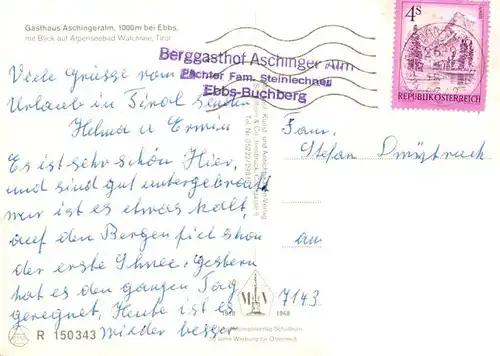 Gasthaus Aschingeralm, 1000m bei Ebbs,
mit Blick auf Alpenseebad Walchsee, Tirol
Berggasthof Aschinger Alm
Pächter Fam. Steinlechner
Ebbs-Buchberg
4 S
REPUBLIK ÖSTERREICH
Viele Grüsse vom
Urlaub in Tirol senden
Helma u Erwin
Es ist sehr schön Hier,
und sind gut untergebracht
nur ist es etwas kalt,
auf den Bergen fiel schon
der erste Schnee. Gestern
hat es den ganzen Tag
geregnet, Heute ist es
wieder besser
Fam.
Stefan
an
7143
1918 1968
R 150343